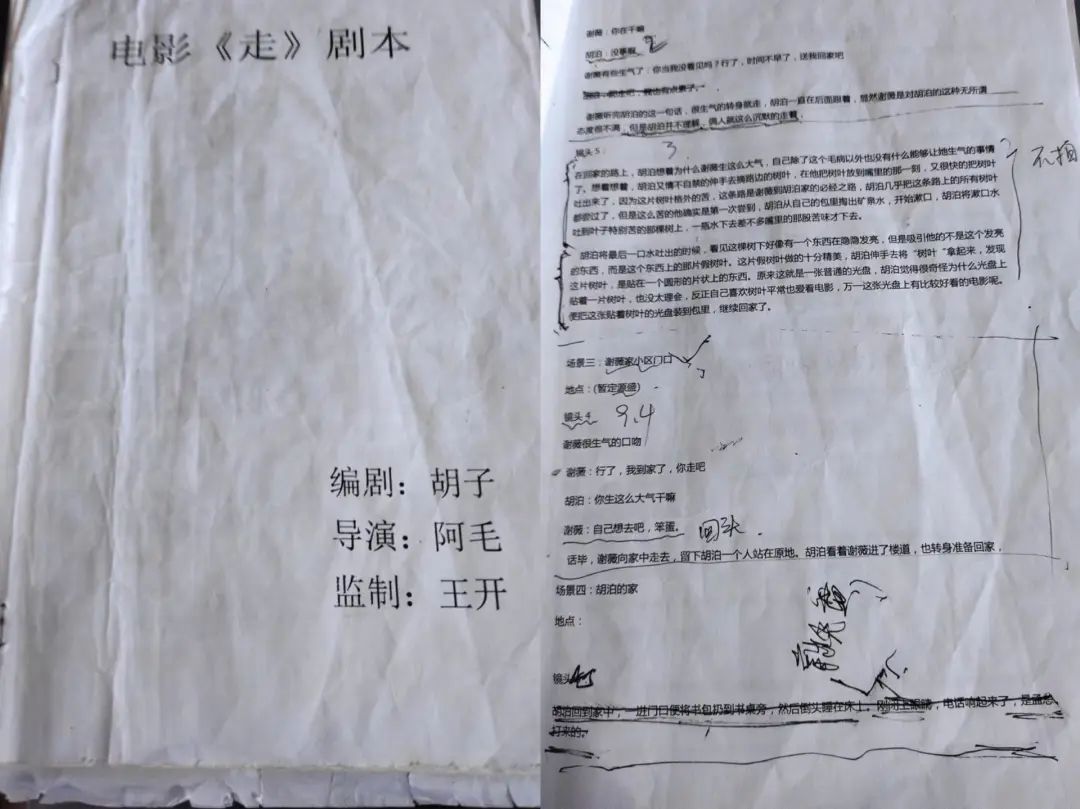 电影《走》剧本
编剧：胡子
导演：阿毛
监制：王开
谢薇：你在干嘛
胡泊：没事啊
谢薇有些生气了：你当我没看见吗？行了，时间不早了，送我回家吧
谢薇听完胡泊的这一句话，很生气的转身就走，胡泊一直在后面跟着，显然谢薇是对胡泊的这种无所谓
态度很不满，但是胡泊并不理解，俩人就这么沉默的走着
镜头5： 3
在回家的路上，胡泊想着为什么谢薇生这么大气，自己除了这个毛病以外也没有什么能够让她生气的事情
了。想着想着，胡泊又情不自禁的伸手去摘路边的树叶，在他把树叶放到嘴里的那一刻，又很快的把树叶
吐出来了，因为这片树叶格外的苦，这条路是谢薇到胡泊家的必经之路，胡泊几乎把这条路上的所有树叶
都尝过了，但是这么苦的他确实是第一次尝到，胡泊从自己的包里掏出矿泉水，开始漱口，胡泊将漱口水
吐到叶子特别苦的那棵树上，一瓶水下去差不多嘴里的那股苦味才下去。
不拍
胡泊将最后一口水吐出的时候，看见这棵树下好像有一个东西在隐隐发亮，但是吸引他的不是这个发亮
的东西，而是这个东西上的那片假树叶。这片假树叶做的十分精美，胡泊伸手去将“树叶”拿起来，发现
这片树叶，是贴在一个圆形的片状上的东西。原来这就是一张普通的光盘，胡泊觉得很奇怪为什么光盘上
贴着一片树叶，也没太理会，反正自己喜欢树叶平常也爱看电影，万一这张光盘上有比较好看的电影呢。
便把这张贴着树叶的光盘装到包里，继续回家了。
场景三：谢薇家小区门口
地点：(暂定源盛)
镜头4 9.4
谢薇很生气的口吻
谢薇：行了，我到家了，你走吧
胡泊：你生这么大气干嘛
谢薇：自己想去吧，笨蛋。 回头
话毕，谢薇向家中走去，留下胡泊一个人站在原地。胡泊看着谢薇进了楼道，也转身准备回家，
场景四：胡泊的家
地点：
镜头
胡泊回到家中，一进门口便将书包扔到书桌旁，然后倒头睡在床上，刚闭上眼睛，电话响起来了，是孟总
打来的。